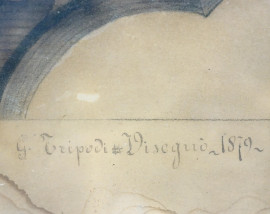 G. Tripodi Disegnò 1879